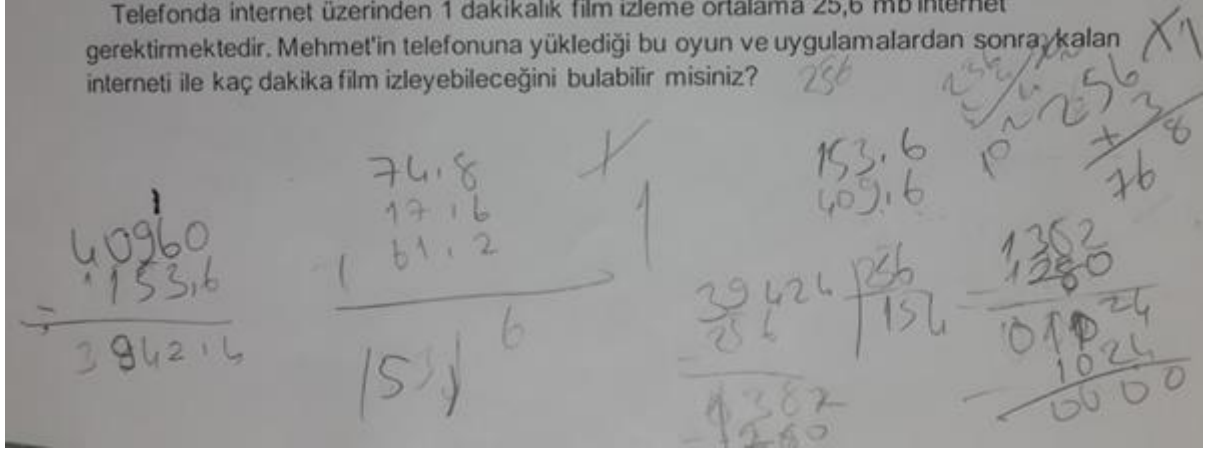 Telefonda internet üzerinden 1 dakikalık film izleme ortalama 25,6 mb internet
gerektirmektedir. Mehmet'in telefonuna yüklediği bu oyun ve uygulamalardan sonra kalan
interneti ile kaç dakika film izleyebileceğini bulabilir misiniz?
256
256
x 3
768
40960
1153,6
3942,4
74,8
17,6
61,2
153,6
153,6
409,6
39424 256
256 154
1382
1280
1362
1280
01024
1024
0000